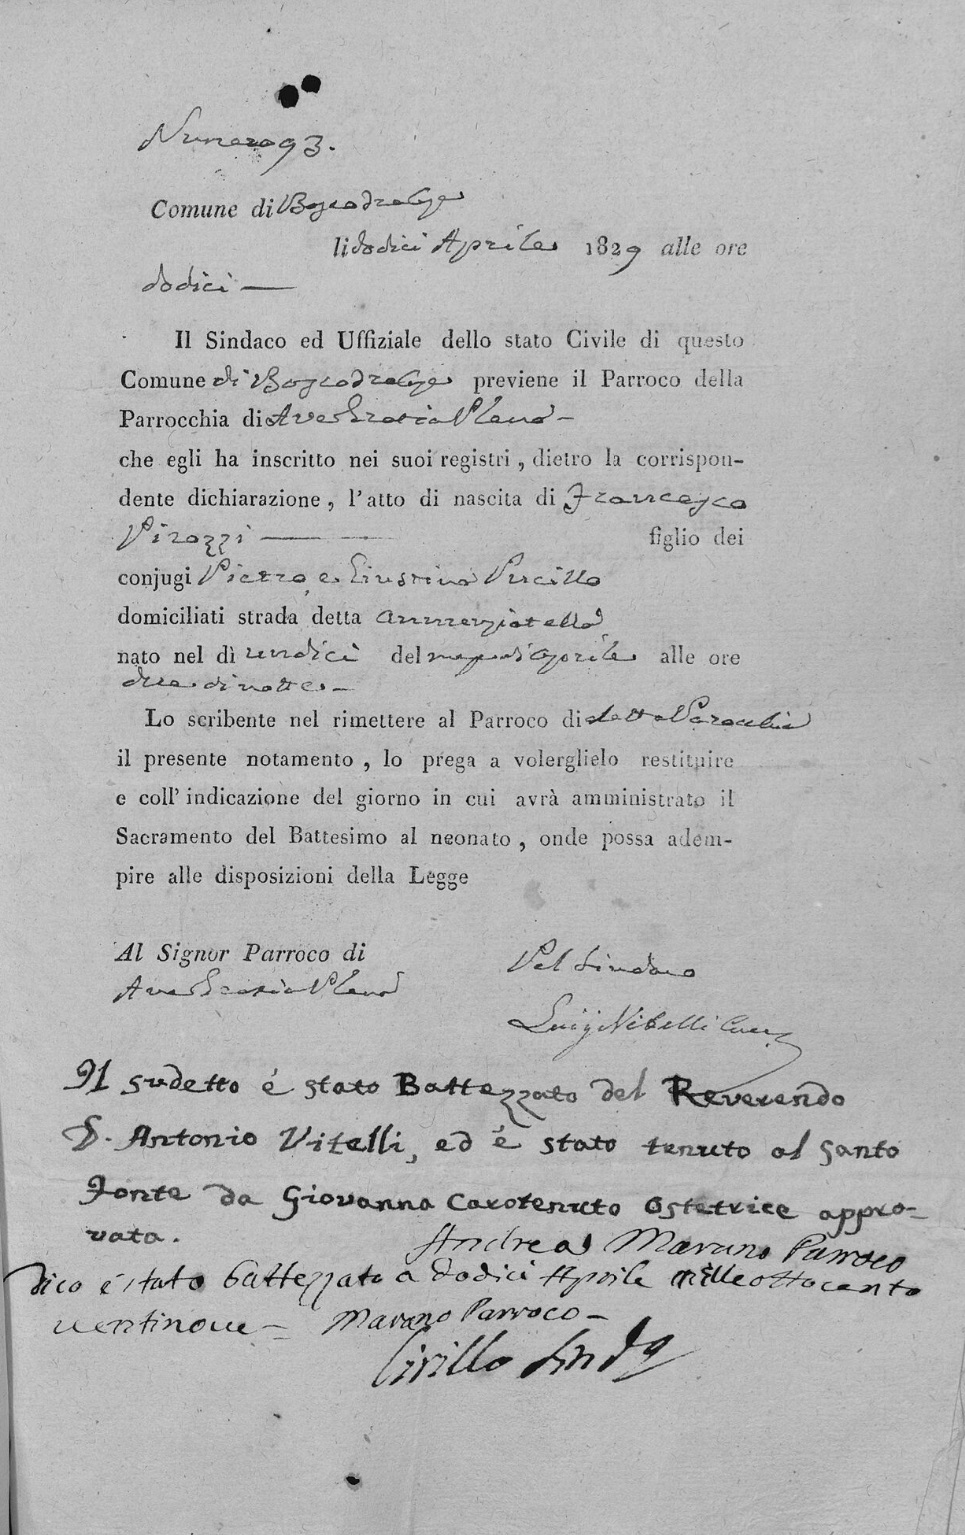 Numero 93.
Comune di Boscotrecase
li dodici Aprile 1829 alle ore
dodici —
Il Sindaco ed Uffiziale dello stato Civile di questo
Comune di Boscotrecase previene il Parroco della
Parrocchia di Ave Gratia Plena —
che egli ha inscritto nei suoi registri , dietro la corrispon-
dente dichiarazione , l'atto di nascita di Francesco
Pirozzi — — figlio dei
conjugi Pietro, e Giustina Pucillo
domiciliati strada detta Annunziatella
nato nel dì undici del mese di Aprile alle ore
due di notte —
Lo scribente nel rimettere al Parroco di detta Parocchia
il presente notamento , lo prega a volerglielo restituire
e coll' indicazione del giorno in cui avrà amministrato il
Sacramento del Battesimo al neonato , onde possa adem-
pire alle disposizioni della Legge
Al Signor Parroco di
Ave Gratia Plena
Pel Sindaco
Luigi Vitelli
Il sudetto é stato Battezzato del Reverendo
D. Antonio Vitelli, ed é stato tenuto al Santo
Fonte da Giovanna Carotenuto Ostetrice appro-
vata.
Andrea Marano Parroco
Dico é stato battezzato a dodici Aprile mille ottocento
ventinove — Marano Parroco —
Cirillo Sind.º